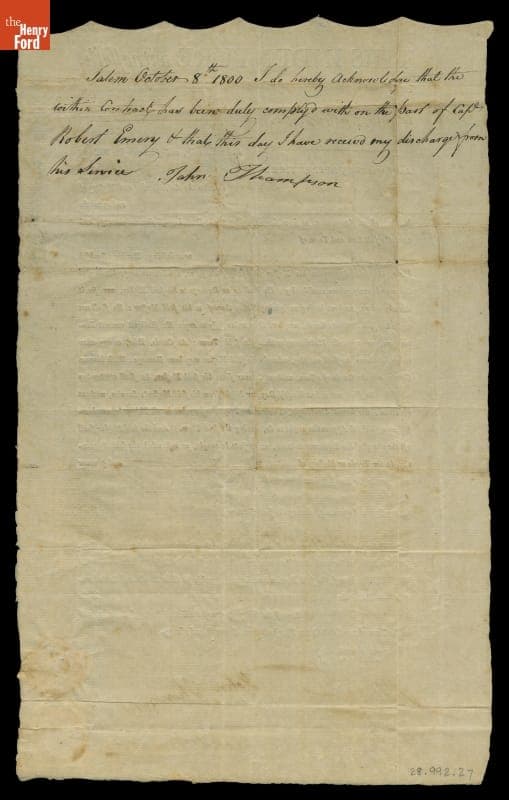 the
Henry
Ford
Salem October 8th 1800 I do hereby Acknowledge that the
within Contract has been duly comply'd with on the part of Capt
Robert Emery & that this day I have received my discharge from
his Service John Thompson
28.992.27